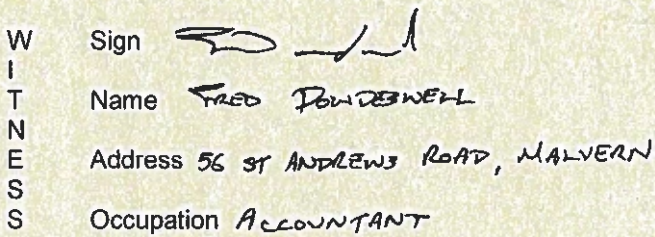 WITNESS
Sign
Name FRED DOWDESWELL
Address 56 ST ANDREWS ROAD, MALVERN
Occupation ACCOUNTANT